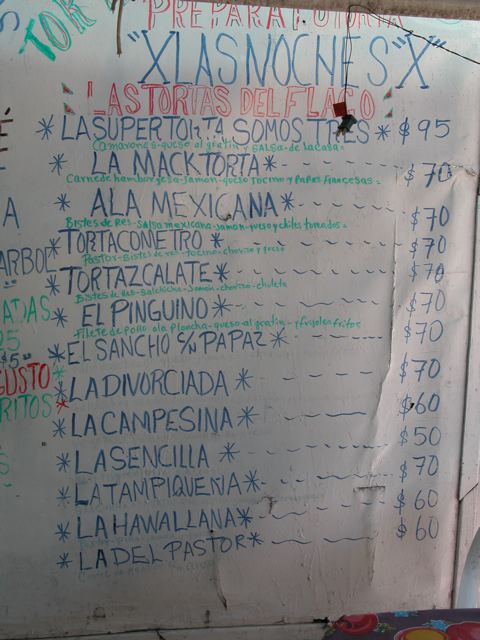 TOR
PREPARA
"XLASNOCHES"X"
LASTORTAS DEL FLACO
*LA SUPERTORTA SOMOS TRES* $95
Camarones-queso al gratin y salsa-de la casa=
* LA MACKTORTA* $70
Carne de hamburgesa-Jamon-queso Tocino y Papas Francesas=
* ALA MEXICANA* $70
Bistes de Res-salsa mexicana-jamon-queso y chiles toreados=
*TORTACONETRO* $70
Pastor-Bistes de res-tocino-chorizo y queso
*TORTAZCALATE* $70
Bistes de Res-salchicha-Jamon-chorizo-chuleta
* EL PINGUINO* $70
Filete de Pollo ala Plancha-queso al gratin-y frijoles fritos
*EL SANCHO C/N PAPAZ* $70
*LA DIVORCIADA* $70
*LA CAMPESINA* $60
*LA SENCILLA* $50
*LA TAMPIQUEÑA* $70
*LA HAWALLANA* $60
*LA DEL PASTOR* $60
A
ARBOL
GUSTO
RITOS*